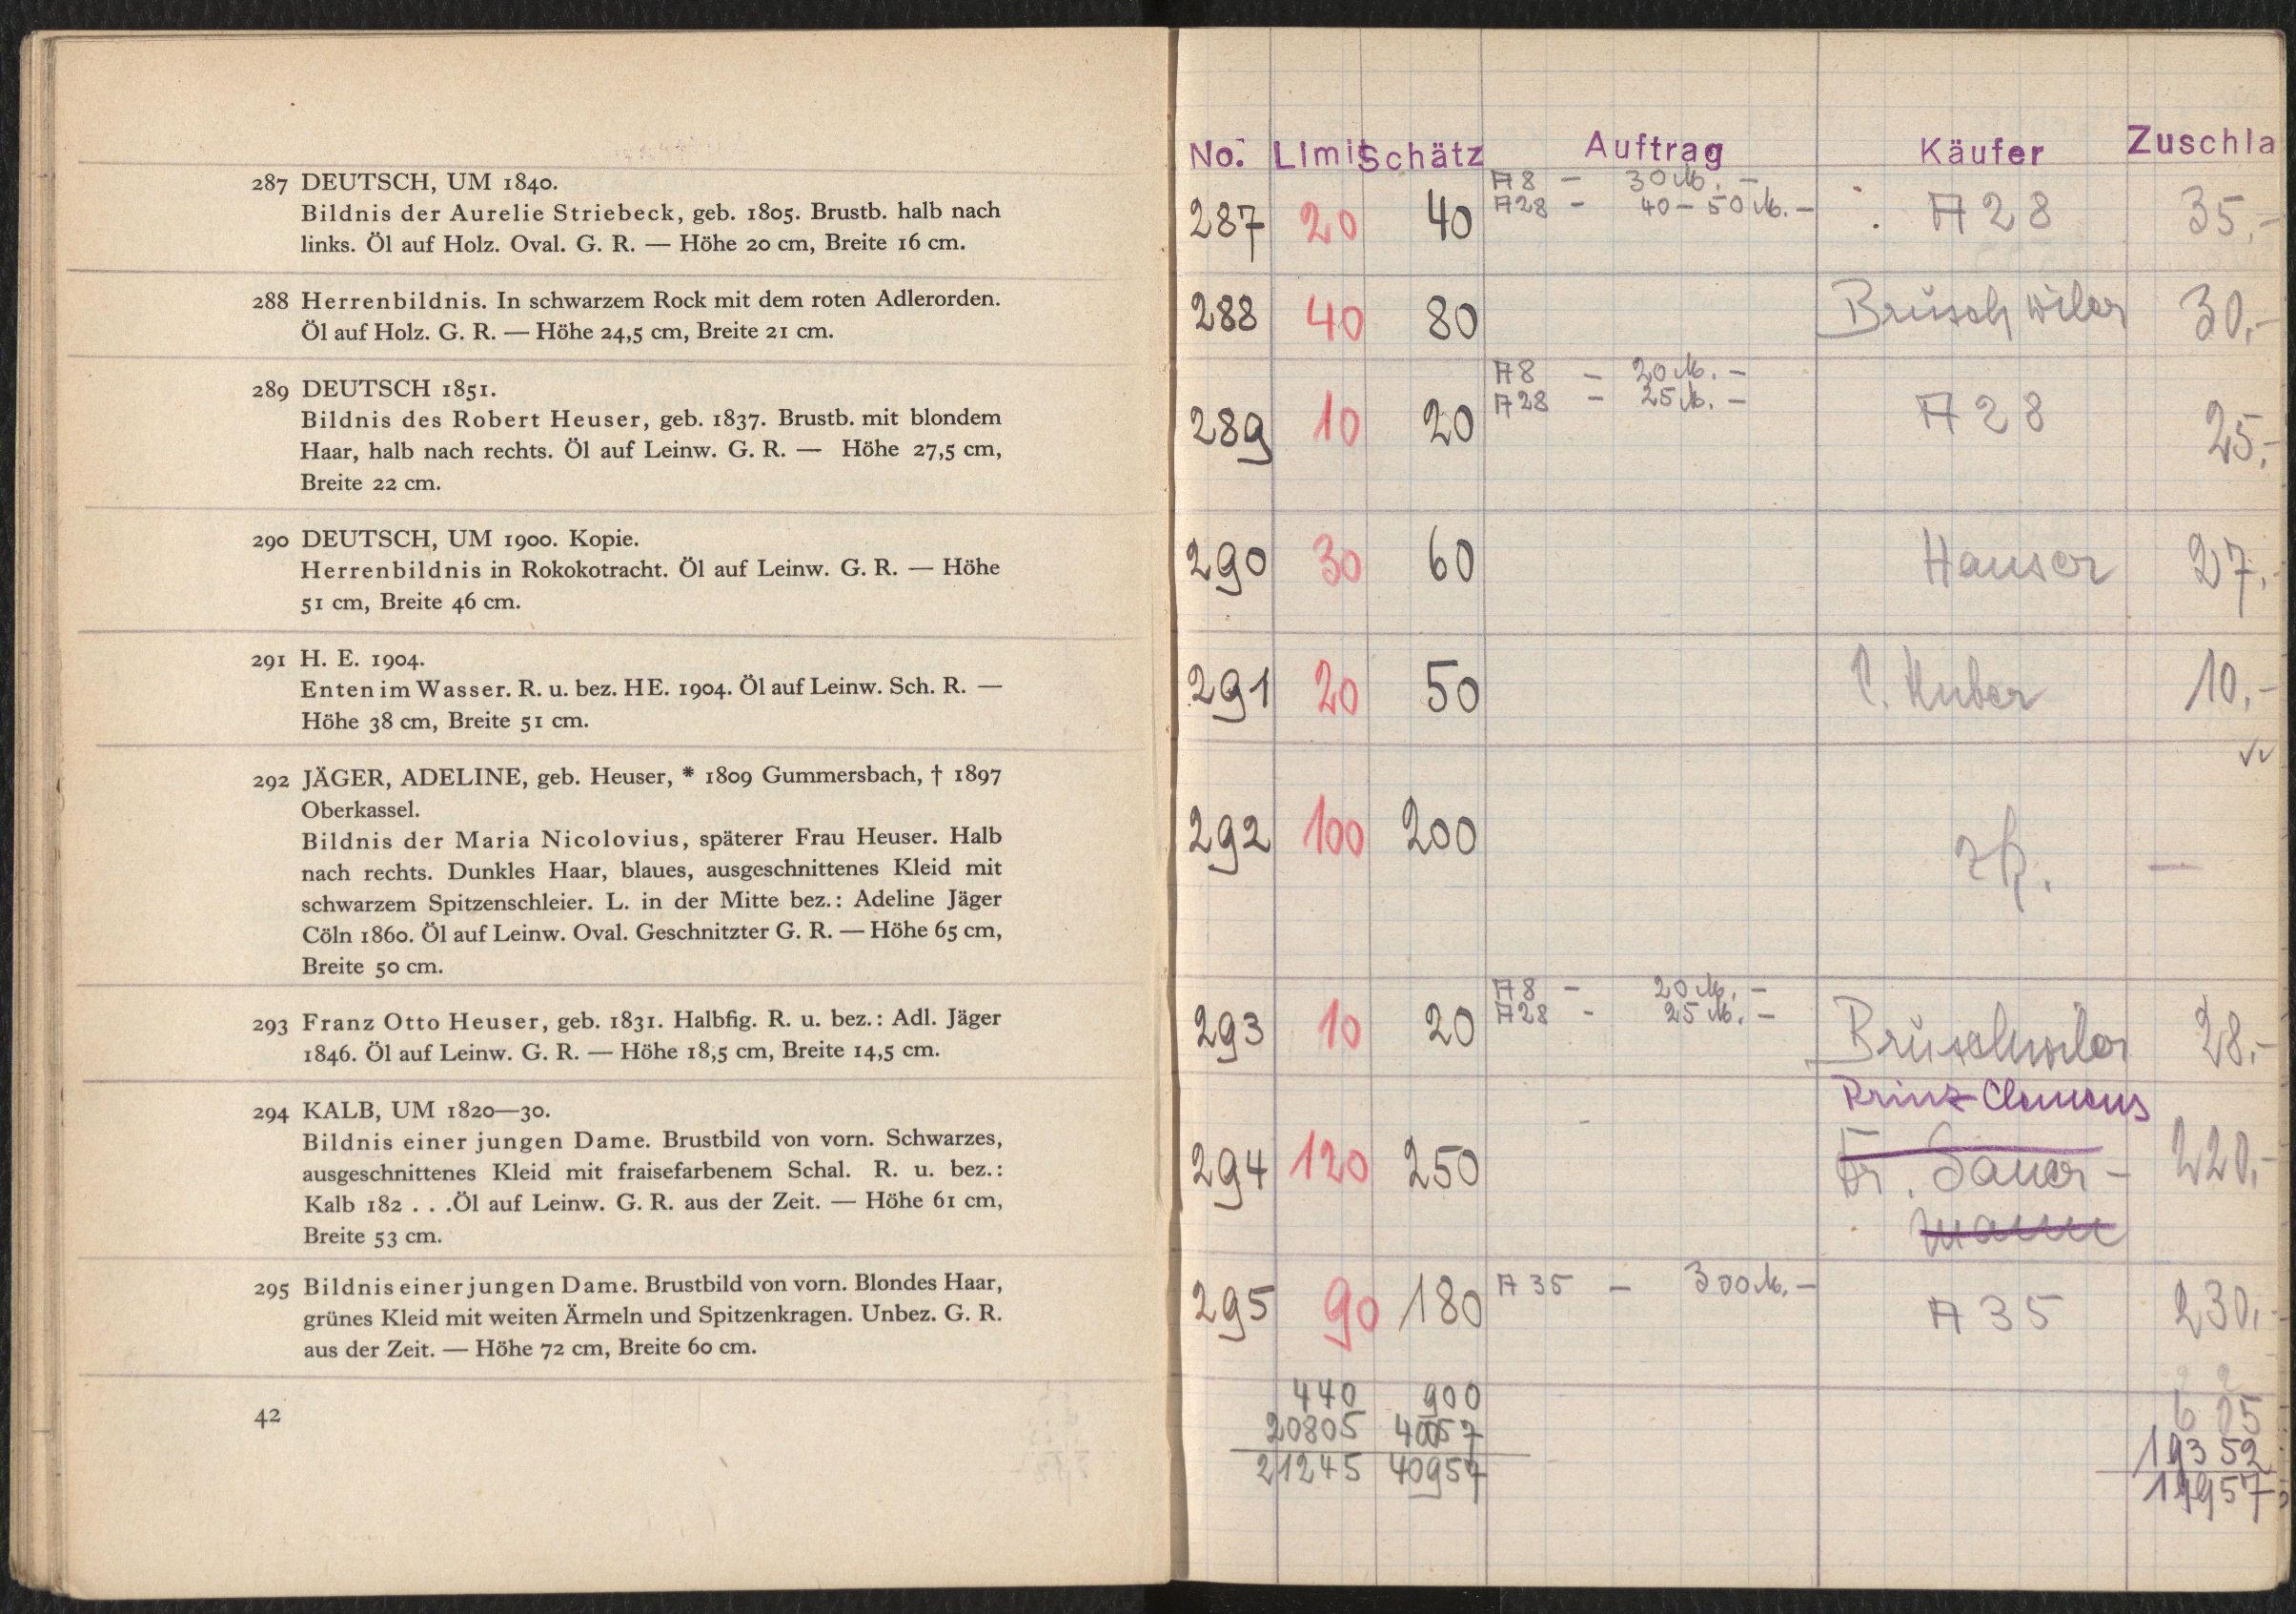 287 DEUTSCH, UM 1840.
Bildnis der Aurelie Striebeck, geb. 1805. Brustb. halb nach
links. Öl auf Holz. Oval. G. R. — Höhe 20 cm, Breite 16 cm.
288 Herrenbildnis. In schwarzem Rock mit dem roten Adlerorden.
Öl auf Holz. G. R. — Höhe 24,5 cm, Breite 21 cm.
289 DEUTSCH 1851.
Bildnis des Robert Heuser, geb. 1837. Brustb. mit blondem
Haar, halb nach rechts. Öl auf Leinw. G. R. — Höhe 27,5 cm,
Breite 22 cm.
290 DEUTSCH, UM 1900. Kopie.
Herrenbildnis in Rokokotracht. Öl auf Leinw. G. R. — Höhe
51 cm, Breite 46 cm.
291 H. E. 1904.
Enten im Wasser. R. u. bez. HE. 1904. Öl auf Leinw. Sch. R. —
Höhe 38 cm, Breite 51 cm.
292 JÄGER, ADELINE, geb. Heuser, * 1809 Gummersbach, † 1897
Oberkassel.
Bildnis der Maria Nicolovius, späterer Frau Heuser. Halb
nach rechts. Dunkles Haar, blaues, ausgeschnittenes Kleid mit
schwarzem Spitzenschleier. L. in der Mitte bez.: Adeline Jäger
Cöln 1860. Öl auf Leinw. Oval. Geschnitzter G. R. — Höhe 65 cm,
Breite 50 cm.
293 Franz Otto Heuser, geb. 1831. Halbfig. R. u. bez.: Adl. Jäger
1846. Öl auf Leinw. G. R. — Höhe 18,5 cm, Breite 14,5 cm.
294 KALB, UM 1820—30.
Bildnis einer jungen Dame. Brustbild von vorn. Schwarzes,
ausgeschnittenes Kleid mit fraisefarbenem Schal. R. u. bez.:
Kalb 182 . . .Öl auf Leinw. G. R. aus der Zeit. — Höhe 61 cm,
Breite 53 cm.
295 Bildnis einer jungen Dame. Brustbild von vorn. Blondes Haar,
grünes Kleid mit weiten Ärmeln und Spitzenkragen. Unbez. G. R.
aus der Zeit. — Höhe 72 cm, Breite 60 cm.
42
No. Limit Schätz Auftrag Käufer Zuschla
A 8 – 30 M. –
A 28 – 40 – 50 M. –
287 20 40 A 28 35,–
288 40 80 Brüschwiler 30,–
A 8 – 20 M. –
A 28 – 25 M. –
289 10 20 A 28 25,–
290 30 60 Hauser 27,–
291 20 50 C. Huber 10,–
292 100 200 zk. —
A 8 – 20 M. –
A 28 – 25 M. –
293 10 20 Brüschwiler 28,–
Prinz Clemens
294 120 250 Dr. Sauer- 220,–
mann
A 35 – 300 M. –
295 90 180 A 35 230,–
440 900 605
20805 40057 19352
21245 40957 19957